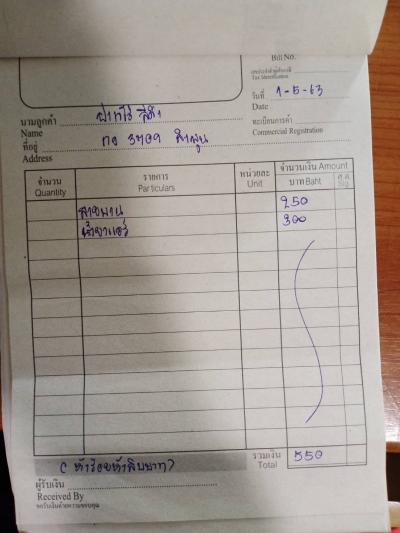 Bill No.
เลขประจำตัวผู้เสียภาษี
Tax Identification
วันที่ 1-5-63
Date
นามลูกค้า
Name
ทะเบียนการค้า
Commercial Registration
ที่อยู่ กอ 3709 ลำพูน
Address
จำนวน รายการ หน่วยละ จำนวนเงิน Amount
Quantity Particulars Unit บาท Baht ส.ต. Stg.
สายพาน 250
น้ำยาแอร์ 300
(ห้าร้อยห้าสิบบาท) รวมเงิน 550
Total
ผู้รับเงิน
Received By
ขอรับเงินด้วยความขอบคุณ